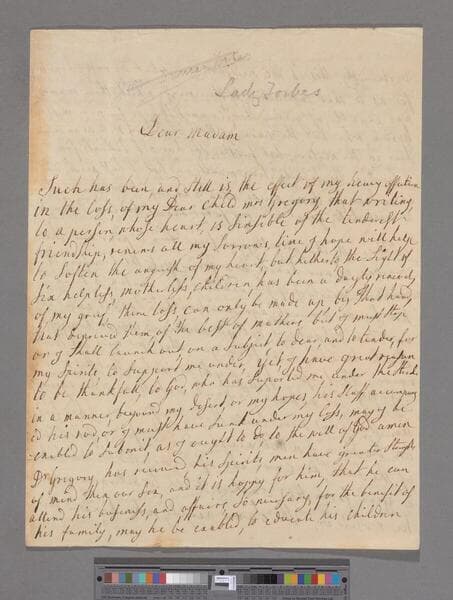 Lady Forbes
Dear Madam
Such has been and still is, the effect of my heavy affliction
in the loss, of my Dear Child mrs Gregory, that writing
to a person whose heart, is sinsible of the tenderest
friendship, renews all my sorrows, time I hope will help
to soften the anguish of my heart, but hitherto the sight of
six helpless, motherless, children, has been a dayly renewing
of my grief, their loss can only be made up by that hand
that deprived them, of the best of mothers but I must stop
or I shall launch out on a subject so dear, and so tender, for
my spirits to support me under, yet I have great reason
to be thankfull to God, who has suported me under the stroke
in a manner, beyond my desert, or my hopes, his staff accompany
ed his rod or I must have sunk under my loss, may I be
enabled to submit, as I ought to do to the will of God amen
Dr Gregory has recoverd his spirits, men have greater strength
of mind then our sex, and it is happy for him, that he can
attend his business, and affairs, so necessary, for the benefit of
his family, may he be enabled, to educate his children